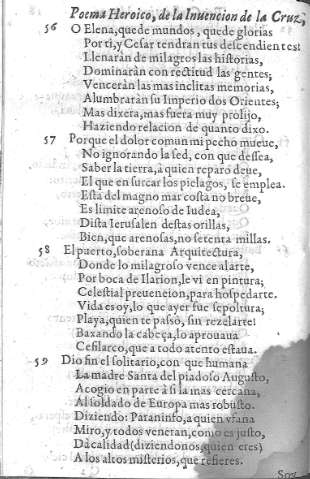 Poema Heroico, de la Inuencion de la Cruz,
56 O Elena, quede mundos, quede glorias
Por ti, y Cesar tendran tus descendientes!
Llenaràn de milagros las historias,
Dominaràn con rectitud las gentes;
Venceràn las mas inclitas memorias,
Alumbraràn su Imperio dos Orientes;
Mas dixera, mas fuera muy prolijo,
Haziendo relacion de quanto dixo.
57 Porque el dolor comun mi pecho mueue,
No ignorando la sed, con que dessea,
Saber la tierra, à quien reparo deue,
El que en surcar los pielagos, se emplea.
Esta del magno mar costa no breue,
Es limite arenoso de Iudea,
Dista Ierusalen destas orillas,
Bien, que arenosas, no setenta millas.
58 El puerto, soberana Arquitectura,
Donde lo milagroso vence al arte,
Por boca de Ilarion, le vi en pintura;
Celestial preuencion, para hospedarte.
Vida es oy, lo que ayer fue sepoltura;
Playa, quien te passò, sin rezelarte!
Baxando la cabeça, lo aprouaua
Cesilarco, que a todo atento estaua.
59 Dio fin el solitario, con que humana
La madre Santa del piadoso Augusto,
Acogio en parte à si la mas cercana,
Al soldado de Europa mas robusto.
Diziendo: Paraninfo, a quien vfana
Miro, y todos veneran, como es justo,
Da calidad (diziendonos, quien eres)
A los altos misterios, que refieres.